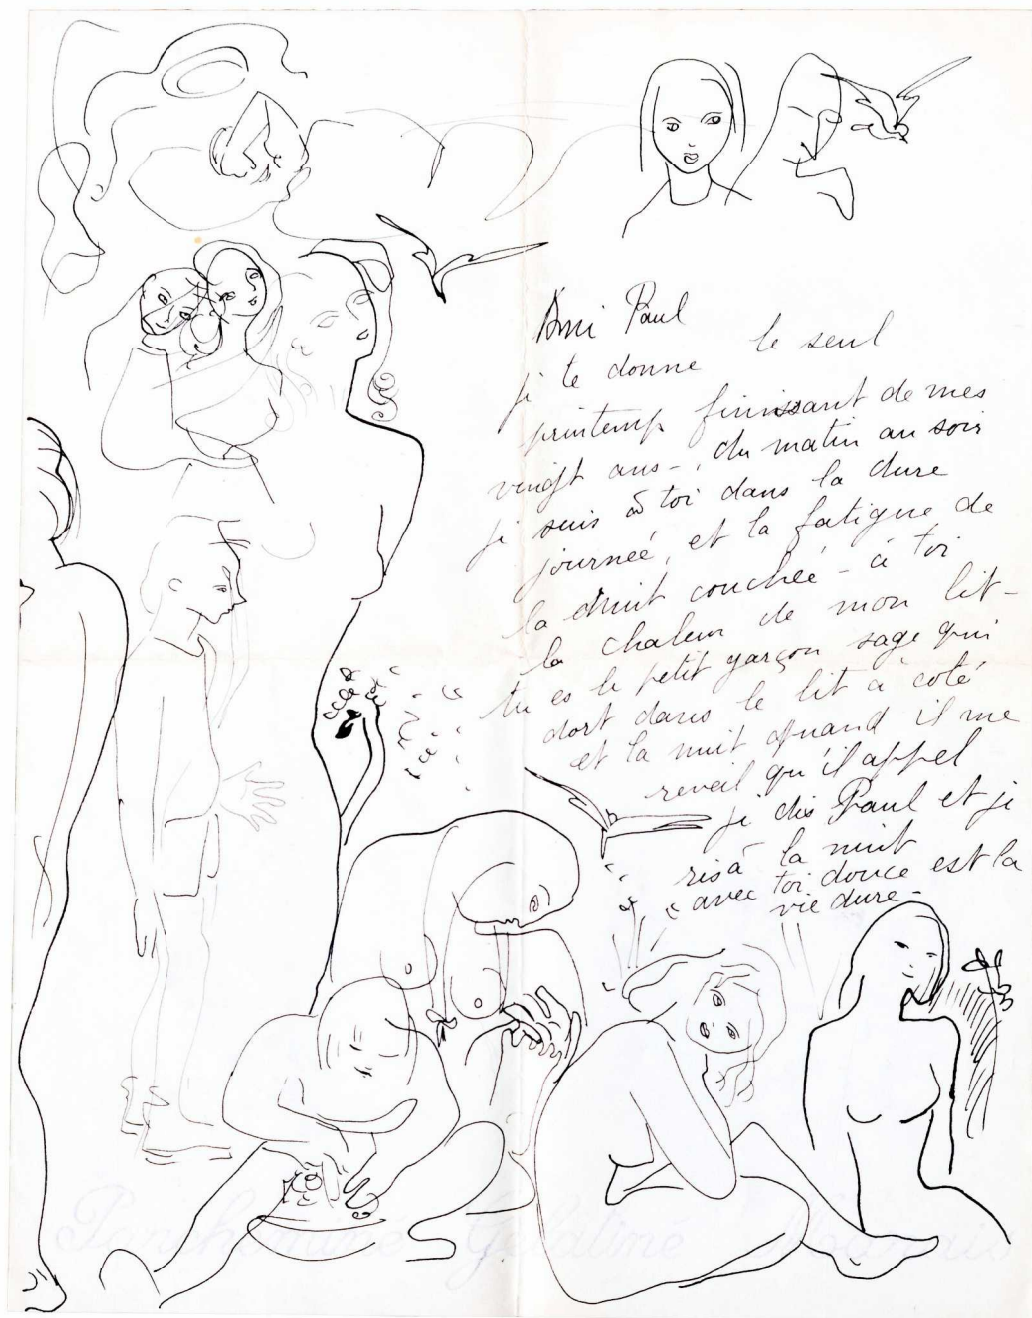 Ami Paul
je te donne le seul
printemp finissant de mes
vingt ans -, du matin au soir
je suis à toi dans la dure
journeé, et la fatigue de
la nuit coucheé - à toi
la chaleur de mon lit -
tu es le petit garçon sage qui
dort dans le lit à coté
et la nuit quand il me
reveil qu'il appel
je dis Paul et je
ris à la nuit
avec toi douce est la
vie dure -
Parcheminé Gélatiné Marais